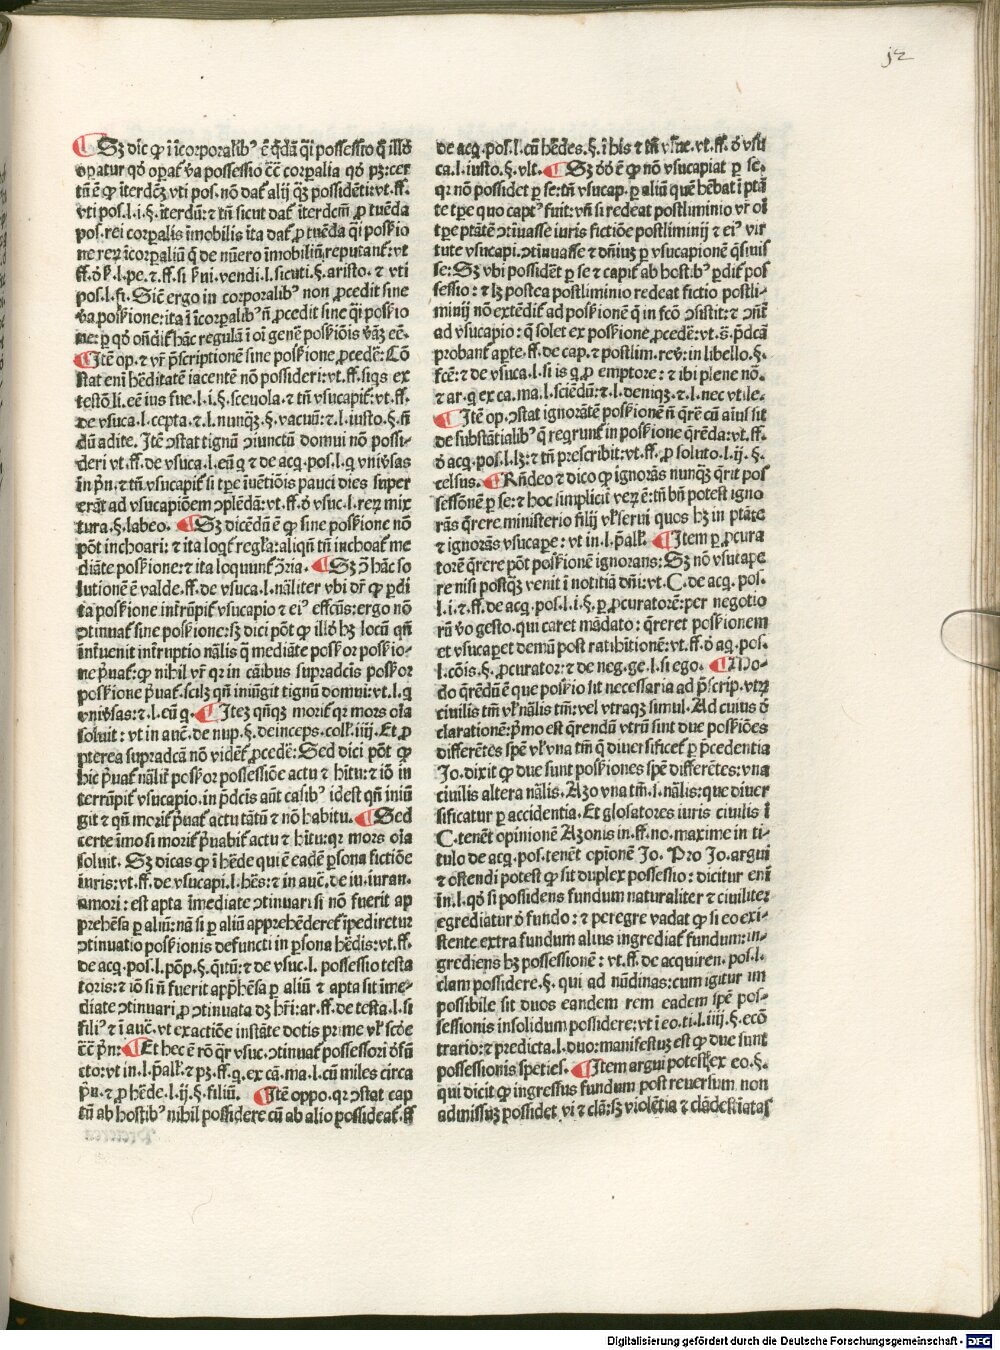 52
¶ Sz dic̄ ꝙ ī īcorꝑoralibꝰ ē q̄dā q̄si possessio q̄ illḋ
oꝑatur qḋ oꝑat᷑ v̄a possessio ēc̄ corꝑalia qḋ pꝫ: cer
tū ē ꝙ īterdēꝫ vti pos. nō dat᷑ alij qꝫ possidēti: vt. ff.
vti pos. l. i. §. īterdū: ⁊ tn̄ sicut dat᷑ īterdcm̄ ꝓ tuēda
pos. rei corꝑalis īmobilis ita dat᷑ ꝓ tuēda q̄si possio
ne reꝝ īcorꝑaliū q̄ de nūero īmobiliū reputant᷑: vt
ff. ḋ v̄. l. pe. ⁊. ff. si s̄ui. vendi. l. sicuti. §. aristo. ⁊ vti
pos. l. fi. Sic̄ ergo in corporalibꝰ non ꝓcedit sine
v̄a possione: ita ī īcorꝑalibꝰ n̄ ꝓcedit sine q̄si possio
ne: ꝑ qḋ on̄dit᷑ hāc regulā ī oī genē possiōis v̄aꝫ eē.
¶ Itē op. ⁊ vr̄ p̄scriptionē sine possione ꝓcedē: Cō
stat eni hēditatē iacentē nō possideri: vt. ff. siqs ex
testō li. eē ius fue. l. i. §. sceuola. ⁊ tn̄ vsucapit᷑: vt. ff.
de vsuca. l. cepta. ⁊. l. nunqꝫ. §. vacuū: ⁊. l. iusto. §. n̄
dū adite. Itē ꝯstat tignū ꝯiunctū domui nō possi-
deri vt. ff. de vsuca. l. eū q̄ ⁊ de acq. pos. l. q̄ vniv̄sas
in p̄n. ⁊ tn̄ vsucapit᷑ si tꝑe iūetiōis pauci dies super
erāt ad vsucapiōem ꝯplēdā: vt. ff. ḋ vsuc. l. reꝝ mix
tura. §. labeo. ¶ Sz dicēdū ē ꝙ sine possione nō
pōt inchoari: ⁊ ita loqt᷑ regl̄a: aliqn̄ tn̄ inchoat᷑ me
diāte possione: ⁊ ita loquunt᷑ ꝯ̄ria. ¶ Sz ꝯ̄ hāc so
lutionē ē valde. ff. de vsuca. l. nāliter vbi dr̄ ꝙ ꝑdi
ta possione int᷑rūpit᷑ vsucapio ⁊ eiꝰ effcūs: ergo nō
ꝯtinuat᷑ sine possione: sꝫ dici pōt ꝙ illḋ hꝫ locū qn̄
int᷑uenit int᷑ruptio nālis q̄ mediāte possor possio-
ne p̄uat᷑: ꝙ nihil vr̄ qr in cāibus supradcis possor
possione p̄uat᷑. scilꝫ qn̄ iniūgit tignū domui: vt. l. q̄
vniv̄sas: ⁊. l. eū q̄. ¶ Iteꝫ qn̄qꝫ morit᷑ qr mors oīa
soluit: vt in autē. de nup. §. deinceps. coll̄. iiij. Et ꝓ
pterea supradcā nō videt᷑ ꝓcedē: Sed dici pōt ꝙ
hic p̄uat᷑ nālit᷑ possor possessiōe actu ⁊ hītu: ⁊ iō in
terrūpit᷑ vsucapio. in p̄dcis aūt casibꝰ idest qn̄ iniū
git ⁊ qn̄ morit᷑ p̄uat᷑ actu tātū ⁊ nō habitu. ¶ Sed
certe īmo si morit᷑ p̄uabit᷑ actu ⁊ hītu: qr mors oīa
soluit. Sz dicas ꝙ ī hēde qui ē eadē ꝑsona fictiōe
iuris: vt. ff. de vsucapi. l. hēs: ⁊ in autē. de iu. iuran.
amori: est apta īmediate ꝯtinuari si nō fuerit ap
prehēsa ꝑ aliū: nā si ꝑ aliū apprehēderet᷑ īpediretur
ꝯtinuatio possionis defuncti in ꝑsona hēdis: vt. ff.
de acq. pos. l. pōp. §. q̄situ: ⁊ de vsuc. l. possessio testa
toris: ⁊ iō si n̄ fuerit app̄hēsa ꝑ aliū ⁊ apta sit īme-
diate ꝯtinuari ꝓ ꝯtinuata dꝫ hr̄i: ar. ff. de testa. l. si
filiꝰ ⁊ ī autē. vt exactiōe instāte dotis prime vl̄ scḋe
ēc̄ p̄n: ¶ Et hec ē rō qr vsuc. ꝯtinuat᷑ possessori ḋfūn
cto: vt in. l. p̄all̄. ⁊ pꝫ. ff. q̄. ex cā. ma. l. cū miles circa
p̄n. ⁊ ꝓ hēde. l. ij. §. filiū. ¶ Itē oppo. qr ꝯstat cap
tū ab hostibꝰ nihil possidere cū ab alio possideat᷑. ff
de acq. pos. l. cū hēdes. §. ī his ⁊ tn̄ vsucap. vt. ff. ḋ vsu
ca. l. iusto. §. vlt. ¶ Sz ḋḋ ē ꝙ nō vsucapiat ꝑ se.
qr nō possidet ꝑ se: tn̄ vsucap. ꝑ aliū quē hēbat ī ptā
te tꝑe quo captꝰ fuit: vn̄ si redeat postliminio vr̄ oī
tꝑe ptātē ꝯtinuasse iuris fictiōe postliminij ⁊ eiꝰ vir
tute vsucapi. ꝯtinuasse ⁊ dn̄iuꝫ ꝑ vsucapionē q̄siuis
se: Sz vbi possidēt ꝑ se ⁊ capit᷑ ab hostibꝰ ꝑdit᷑ pos
sessio: ⁊ lꝫ postea postliminio redeat fictio postli-
minij nō extēdit᷑ ad possionē q̄ in fcō ꝯsistit: ⁊ ꝯn̄t
ad vsucapio: q̄ solet ex possione ꝓcedē: vt. s̄. p̄dcā
probant᷑ aꝑte. ff. de cap. ⁊ postlim. reū: in libello. §.
fcē: ⁊ de vsuca. l. si is q̄ ꝓ emptore: ⁊ ibi plene nō.
⁊ ar. q̄ ex ca. ma. l. sciēdū: ⁊. l. deniqꝫ. ⁊. l. nec vtile.
¶ Itē op. ꝯstat ignorātē possionē n̄ q̄rē cū aīus sit
de substātialibꝰ q̄ reqrunt᷑ in possione q̄rēda: vt. ff.
ḋ acq. pos. l. lꝫ: ⁊ tn̄ prescribit: vt. ff. ꝓ soluto. l. ij. §.
celsus. ¶ Rn̄deo ⁊ dico ꝙ ignorās nunqꝫ q̄rit pos
sessōnē ꝑ se: ⁊ hoc simplicit᷑ veꝝ ē: tn̄ bn̄ potest igno
rās q̄rere ministerio filij vl̄ serui quos hꝫ in ptāte
⁊ ignorās vsucape: vt in. l. p̄all̄. ¶ Item ꝑ ꝓcura
torē q̄rere pōt possionē ignorans: Sz nō vsucape
re nisi postqꝫ venit ī notitiā dn̄i: vt. C. de acq. pos.
l. i. ⁊. ff. de acq. pos. l. i. §. ꝑ ꝓcuratorē: per negotio
rū v̄o gesto. qui caret mādato: q̄reret possionem
et vsucapet demū post ratihitionē: vt. ff. ḋ aq. pos.
l. cōis. §. ꝓcurator: ⁊ de neg. ge. l. si ego. ¶ Mo-
do q̄rēdū ē que possio sit necessaria ad p̄scrip. vtꝝ
ciuilis tm̄ vl̄ nālis tm̄: vel vtraqꝫ simul. Ad cuius ḋ
clarationē: p̄mo est q̄rendū vtrū sunt due possiōes
differētes spē vl̄ vna tm̄ q̄ diuersificet᷑ ꝑ p̄cedentia
Jo. dixit ꝙ due sunt possiones spē differētes: vna
ciuilis altera nālis. Azo vna tm̄. l. nālis: que diuer
sificatur ꝑ accidentia. Et glosatores iuris ciuilis ī
C. tenēt opinionē Azonis in. ff. no. maxime in ti-
tulo de acq. pos. tenēt opīonē Jo. Pro Jo. argui
⁊ ostendi potest ꝙ sit duplex possessio: dicitur enī
īn. l. qḋ si possidens fundum naturaliter ⁊ ciuiliter
egrediatur ḋ fundo: ⁊ peregre vadat ꝙ si eo exi-
stente extra fundum alius ingrediat᷑ fundum: in-
grediens hꝫ possessionē: vt. ff. de acquiren. pos. l.
clam possidere. §. qui ad nūdinas: cum igitur im
possibile sit duos eandem rem eadem spē pos-
sessionis insolidum possidere: vt ī eo. ti. l. iiij. §. ecō
trario: ⁊ predicta. l. duo: manifestuꝫ est ꝙ due sunt
possessionis species. ¶ Item argui potest ex eo. §.
qui dicit ꝙ ingressus fundum post reuersum non
admissuꝫ possidet vi ⁊ clā: sꝫ violētia ⁊ clādestiatas
Digitalisierung gefördert durch die Deutsche Forschungsgemeinschaft - DFG